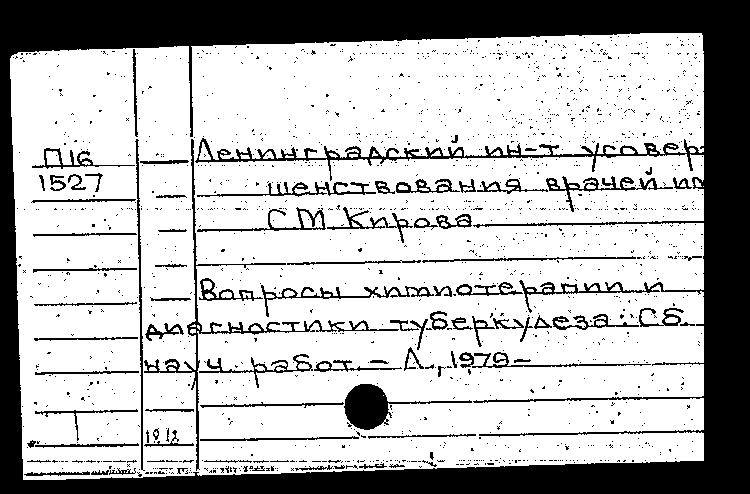 П16
1527
Ленинградский ин-т усовер-
шенствования врачей им
С.М. Кирова.
Вопросы химиотерапии и
диагностики туберкулеза: Сб.
науч. работ. – Л., 1979–